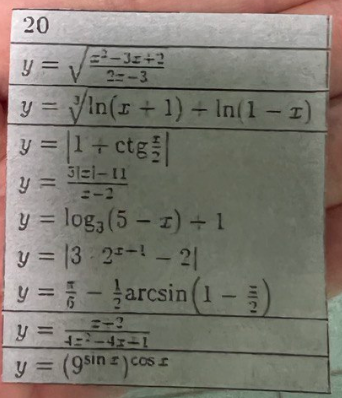 20
y = √((x²−3x+2)/(2x−3))
y = ∛(ln(x + 1) + ln(1 − x))
y = |1 + ctg x/2|
y = (3|x|−11)/(x−2)
y = log₃(5 − x) + 1
y = |3 · 2ˣ⁺¹ − 2|
y = π/6 − 1/2 arcsin(1 − x/2)
y = (x+2)/(4x²−4x+1)
y = (9^(sin x))^(cos x)